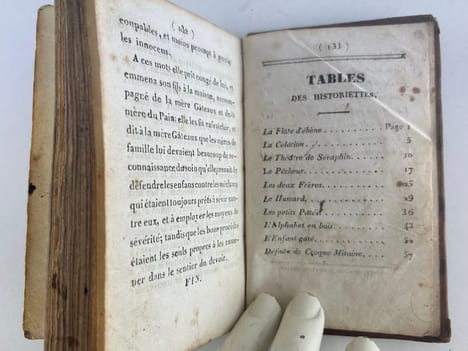 ( 132 )
coupables, et moins prompt à punir
les innocens.
A ces mots elle prit congé de lui, et
emmena son fils à la maison, accom-
pagné de la mère Gâteaux et de la
mère du Pain: elle les fit rafraîchir, et
dit à la mère Gâteaux que les mères de
famille lui devaient beaucoup de re-
connaissance du soin qu'elle prenait de
défendre les enfans contre les méchans
qui étaient toujours prêts à sévir con-
tre eux, et à employer les moyens de
sévérité; tandis que les bons procédés
étaient les seuls propres à les rame-
ner dans le sentier du devoir.
FIN.
( 133 )
TABLES
DES HISTORIETTES.
La Flûte d'ébène . . . . . . . . . . Page 1
La Colation . . . . . . . . . . . . 5
Le Théâtre de Séraphin . . . . . . . 10
Le Pêcheur . . . . . . . . . . . . 17
Les deux Frères . . . . . . . . . . 25
Le Hussard . . . . . . . . . . . . 29
Les petits Pâtés . . . . . . . . . . 36
L'Alphabet en buis . . . . . . . . . 42
L'Enfant gâté . . . . . . . . . . .
Défaite de Croque-Mitaine . . . . . . 57